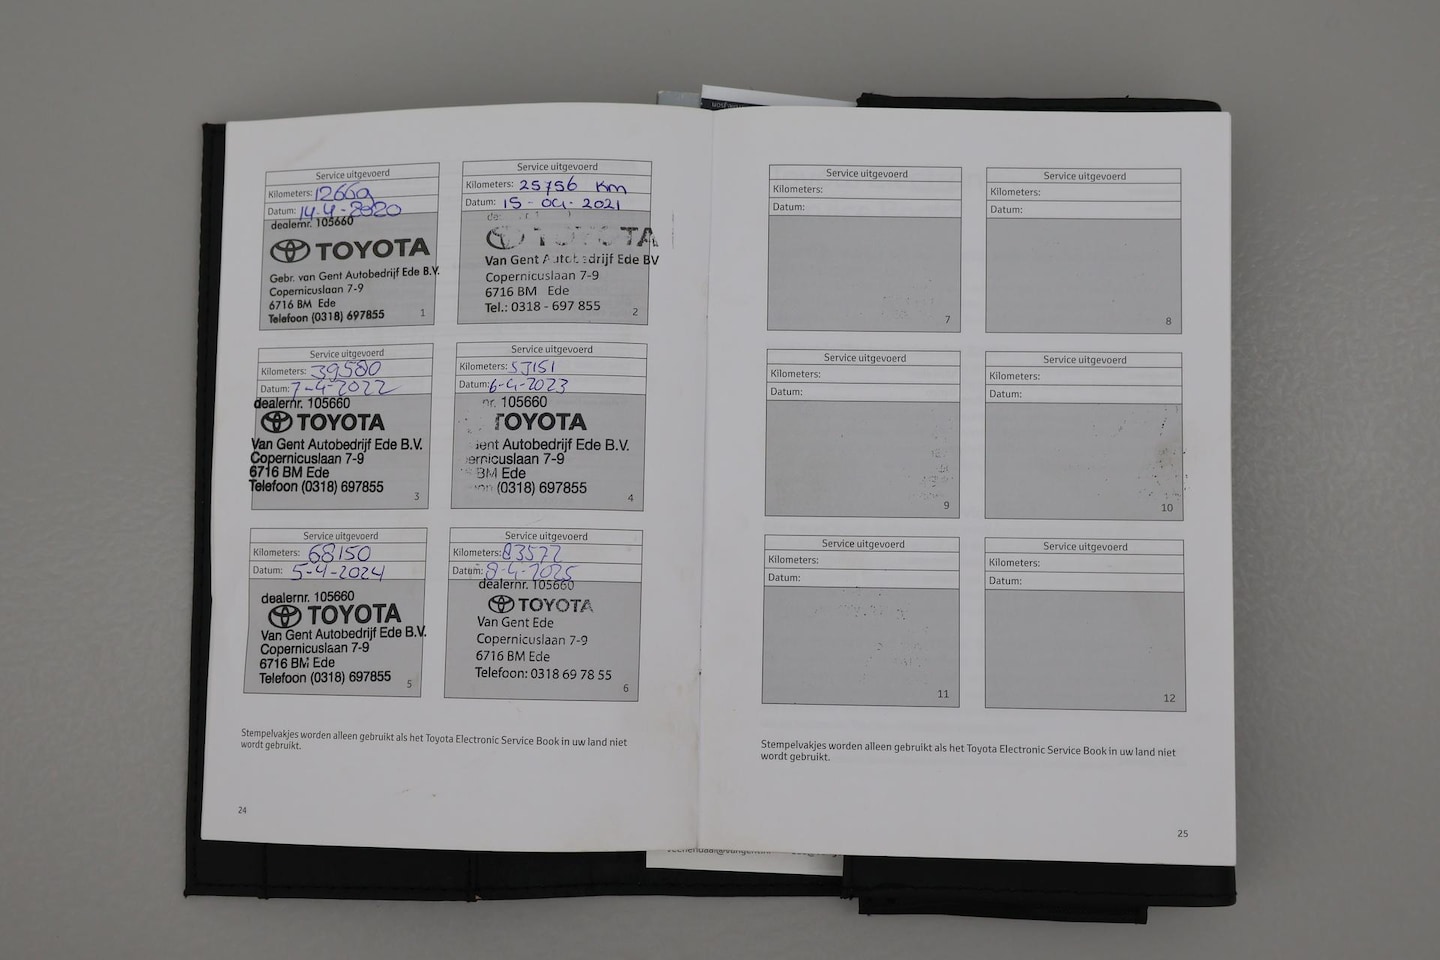 Service uitgevoerd
Kilometers: 12669
Datum: 14-4-2020
dealernr. 105660
TOYOTA
Gebr. van Gent Autobedrijf Ede B.V.
Copernicuslaan 7-9
6716 BM Ede
Telefoon (0318) 697855
1
Service uitgevoerd
Kilometers: 25756 Km
Datum: 15-04-2021
TOYOTA
Van Gent Autobedrijf Ede BV
Copernicuslaan 7-9
6716 BM Ede
Tel.: 0318 - 697 855
2
Service uitgevoerd
Kilometers: 39580
Datum: 7-4-2022
dealernr. 105660
TOYOTA
Van Gent Autobedrijf Ede B.V.
Copernicuslaan 7-9
6716 BM Ede
Telefoon (0318) 697855
3
Service uitgevoerd
Kilometers:
Datum: 6-4-2023
nr. 105660
TOYOTA
Gent Autobedrijf Ede B.V.
ernicuslaan 7-9
BM Ede
(0318) 697855
4
Service uitgevoerd
Kilometers: 68150
Datum: 5-4-2024
dealernr. 105660
TOYOTA
Van Gent Autobedrijf Ede B.V.
Copernicuslaan 7-9
6716 BM Ede
Telefoon (0318) 697855
5
Service uitgevoerd
Kilometers: 83577
Datum: 8-4-2025
dealernr. 105660
TOYOTA
Van Gent Ede
Copernicuslaan 7-9
6716 BM Ede
Telefoon: 0318 69 78 55
6
Stempelvakjes worden alleen gebruikt als het Toyota Electronic Service Book in uw land niet
wordt gebruikt.
24
Service uitgevoerd
Kilometers:
Datum:
7
Service uitgevoerd
Kilometers:
Datum:
8
Service uitgevoerd
Kilometers:
Datum:
9
Service uitgevoerd
Kilometers:
Datum:
10
Service uitgevoerd
Kilometers:
Datum:
11
Service uitgevoerd
Kilometers:
Datum:
12
Stempelvakjes worden alleen gebruikt als het Toyota Electronic Service Book in uw land niet
wordt gebruikt.
25